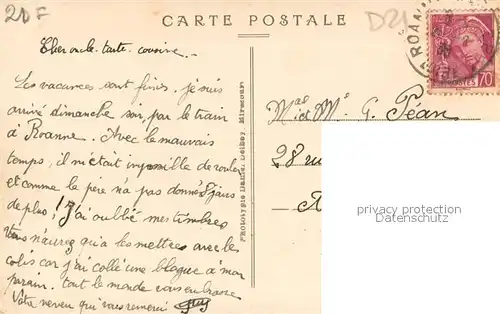 20F
CARTE POSTALE
D21
ROANNE
POSTES 70
Cher oncle. tante. cousine.-
Les vacances sont finis. je suis
arrivé dimanche soir, par le train
à Roanne. Avec le mauvais
temps, il m'était impossible de rouler
et comme le père n'a pas donné 8 jours
de plus! J'ai oublié mes timbres
Vous n'aurez qu'a les mettres avec le
colis car j'ai collé une blague à mon
parain. tout le monde vous embrasse
Votre neveu qui vous remerci Guy
Phototypie Daniel Delbey, Mirecourt
Mr et Me G. Péan
28 rue
privacy protection watermark
delcampe.net